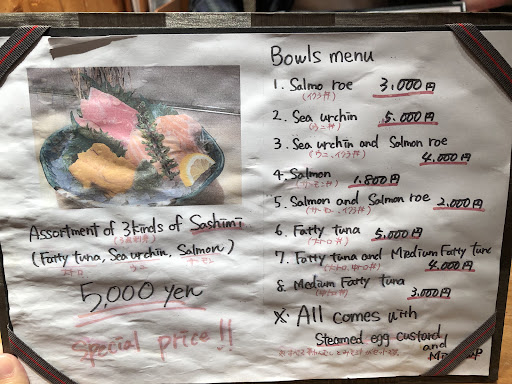 Assortment of 3 kinds of Sashimi
(Fatty tuna, Sea urchin, Salmon)
大トロ ウニ サーモン
5,000 yen
Special price!!
Bowls menu
1. Salmo roe 3,000円
(イクラ丼)
2. Sea urchin 5.000円
(ウニ丼)
3. Sea urchin and Salmon roe
(ウニ、イクラ丼)
4,000円
4. Salmon 1.800円
(サーモン丼)
5. Salmon and Salmon roe 2,000円
(サーモン、イクラ丼)
6. Fatty tuna 5,000円
(大トロ丼)
7. Fatty tuna and Medium Fatty tuna
(大トロ、中トロ丼)
4.000円
8. Medium Fatty tuna
(中トロ丼)
3,000円
※ All comes with
Steamed egg custard
and